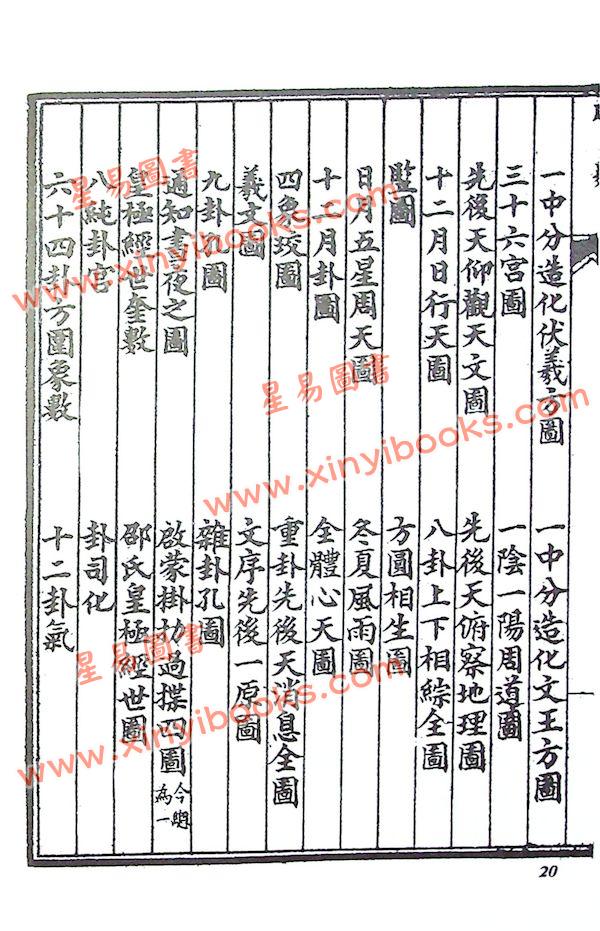 一中分造化伏羲方圖 一中分造化文王方圖
三十六宮圖 一陰一陽周道圖
先後天仰觀天文圖 先後天俯察地理圖
十二月日行天圖 八卦上下相綜全圖
監圖 方圓相生圖
日月五星周天圖 冬夏風雨圖
十二月卦圖 全體心天圖
四象 圖 重卦先後天消息全圖
羲文圖 文序先後一原圖
九卦 圖 雜卦孔圖
通知晝夜之圖 啟蒙掛扐過揲四圖 今 為一
皇極經世 數 邵氏皇極經世圖
八純卦宮 卦司化
六十四卦方圓象數 十二卦氣
20
星易圖書
www.xinyibooks.com
星易圖書
www.xinyibooks.com
星易圖書
www.xinyibooks.com